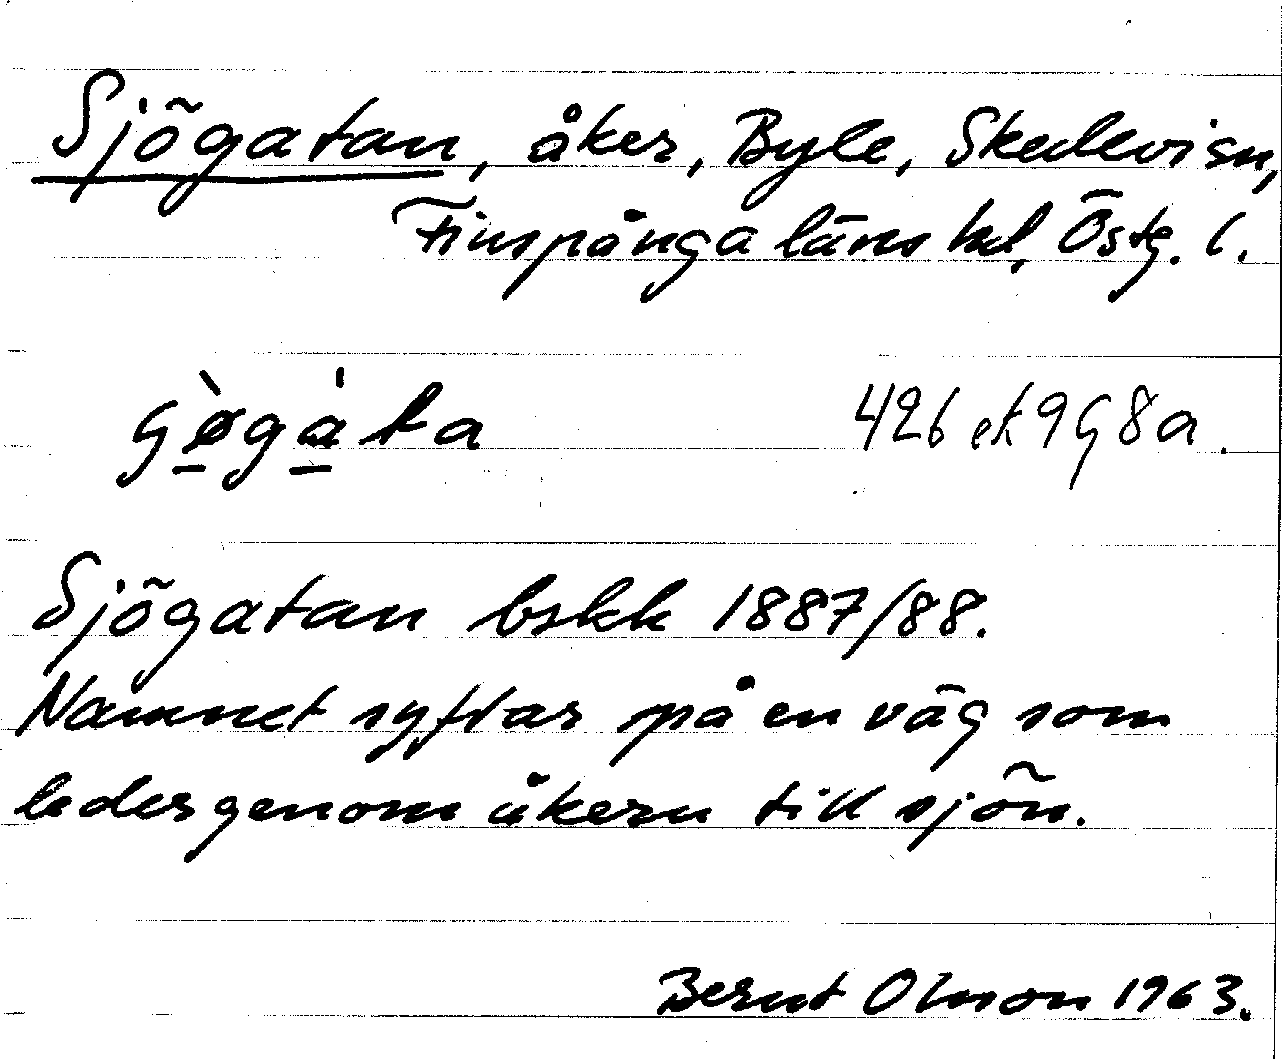 Sjögatan, åker, Byle, Skedevi sn,
Finspånga läns hd, Östg. l.
426 ek 9G 8a.
Sjögatan bskk 1887/88.
Namnet syftar på en väg som
leder genom åkern till sjön.
Bernt Olsson 1963.